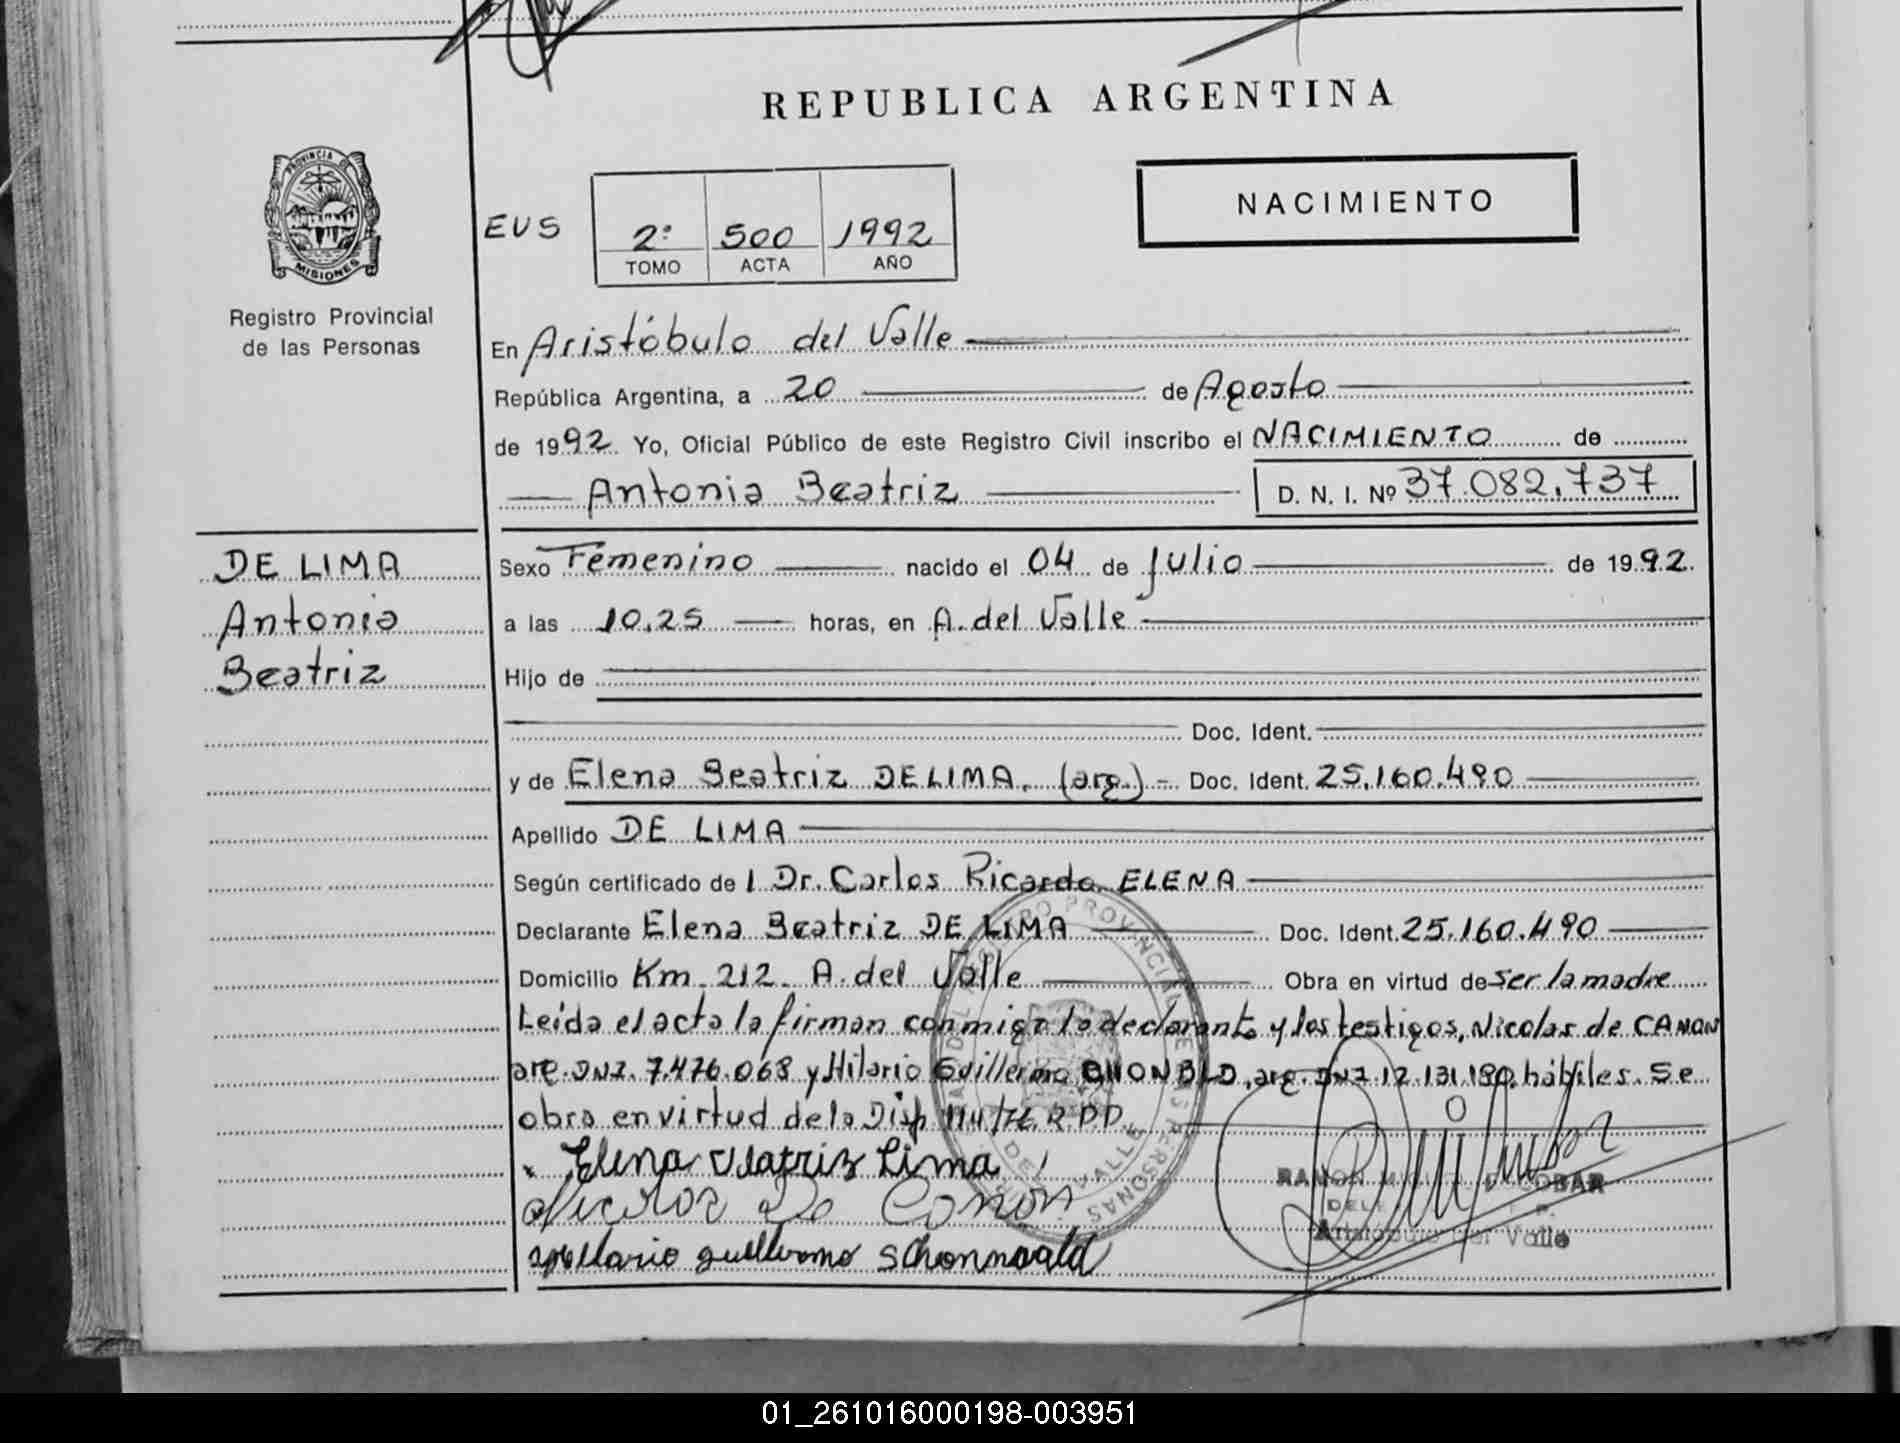 REPUBLICA ARGENTINA
PROVINCIA DE
MISIONES
Registro Provincial
de las Personas
EUS
2º 500 1992
TOMO ACTA AÑO
NACIMIENTO
En Aristóbulo del Valle
República Argentina, a 20 de Agosto
de 1992 Yo, Oficial Público de este Registro Civil inscribo el NACIMIENTO de
Antonia Beatriz D. N. I. Nº 37.082.737
DE LIMA
Antonia
Beatriz
Sexo Femenino nacido el 04 de Julio de 1992.
a las 10,25 horas, en A. del Valle
Hijo de
Doc. Ident.
y de Elena Beatriz DE LIMA. (arg.) Doc. Ident. 25.160.490
Apellido DE LIMA
Según certificado de l Dr. Carlos Ricardo ELENA
Declarante Elena Beatriz DE LIMA Doc. Ident. 25.160.490
Domicilio Km. 212 A. del Valle Obra en virtud de ser la madre
Leída el acta la firman conmigo la declarante y los testigos, Nicolas de CANON
arg. DNI. 7.476.068 y Hilario Guillermo arg. DNI 12.131.190. hábiles. Se
obra en virtud de la Disp 114/76. R.P.P.
Elena Veatriz Lima
Nicolas De Canon
Hilario guillermo schonnwald
REGISTRO PROVINCIAL DE LAS PERSONAS
DEL VALLE
RAMON ESCOBAR
Aristóbulo del Valle
01_261016000198-003951